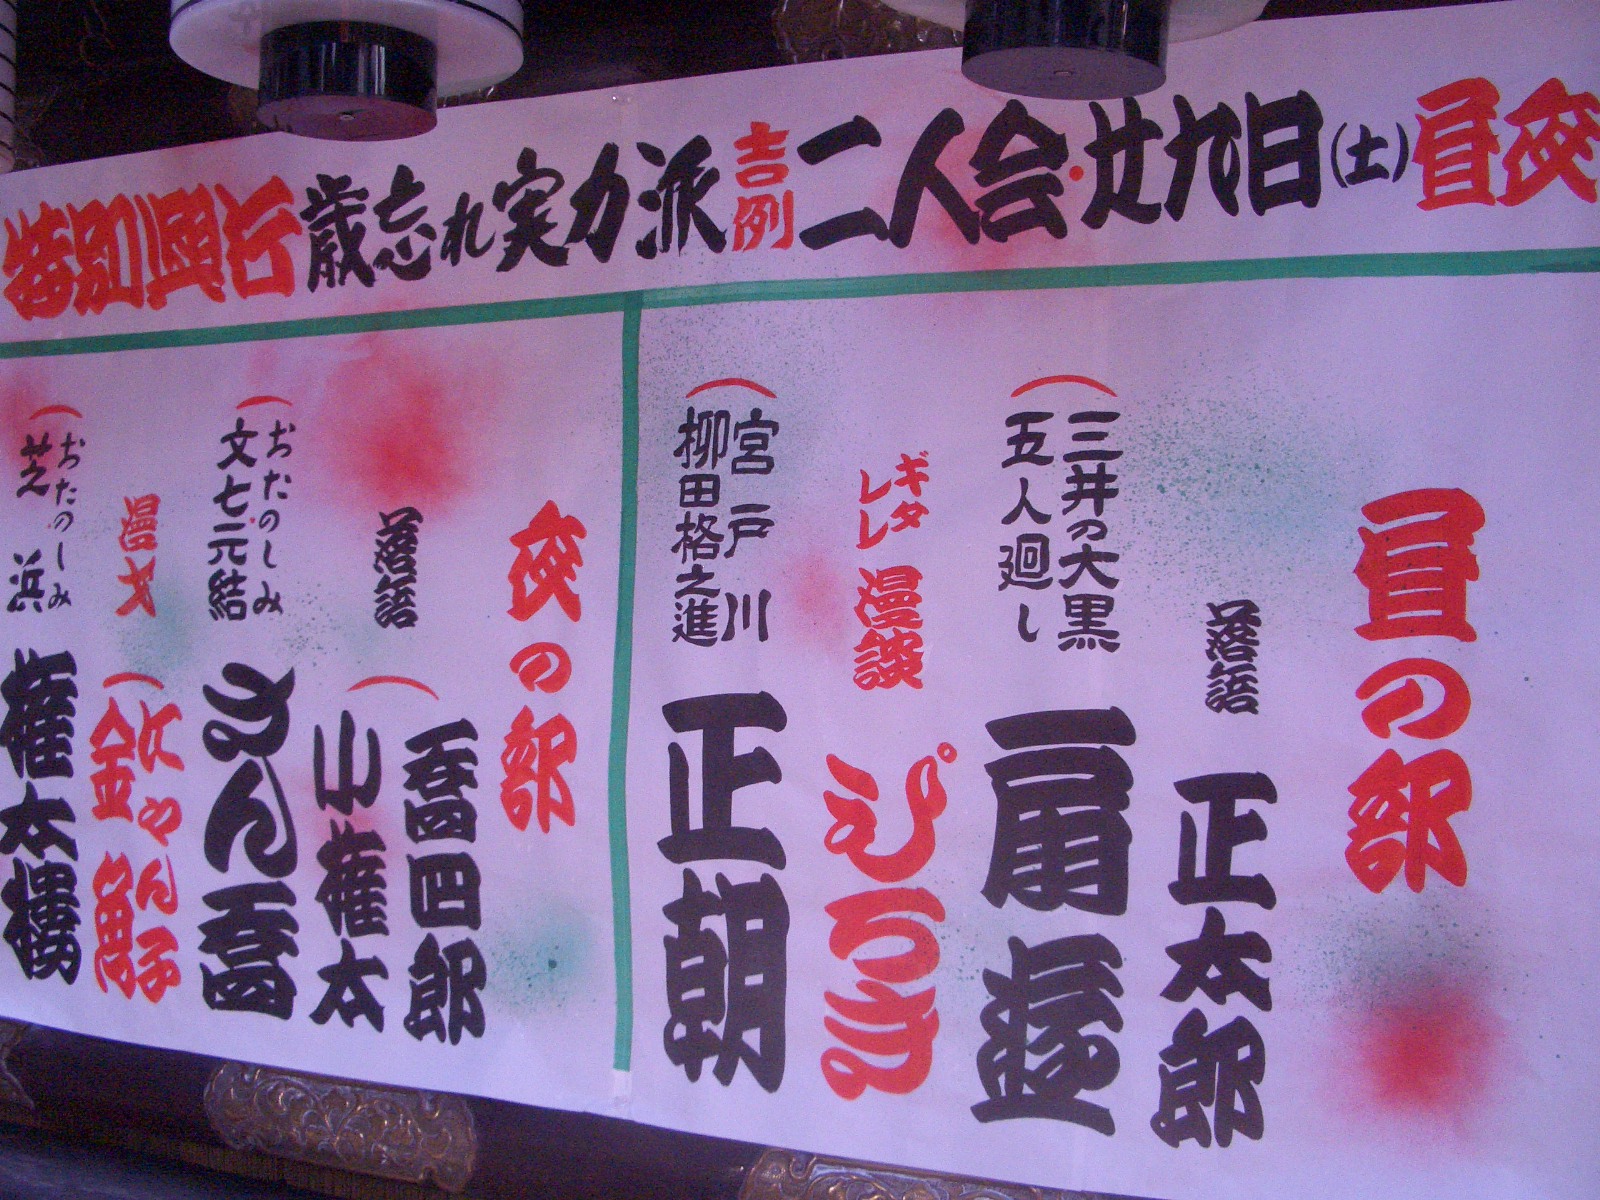 特別興行 歳忘れ実力派吉例二人会・廿九日(土)昼夜
昼の部
落語 正太郎
三井の大黒
五人廻し
扇遊
ギタレレ 漫談 ぴろき
宮戸川
柳田格之進
正朝
夜の部
落語
喬四郎
小権太
おたのしみ
文七元結
さん喬
漫才
にゃん子
金魚
おたのしみ
芝浜
権太樓